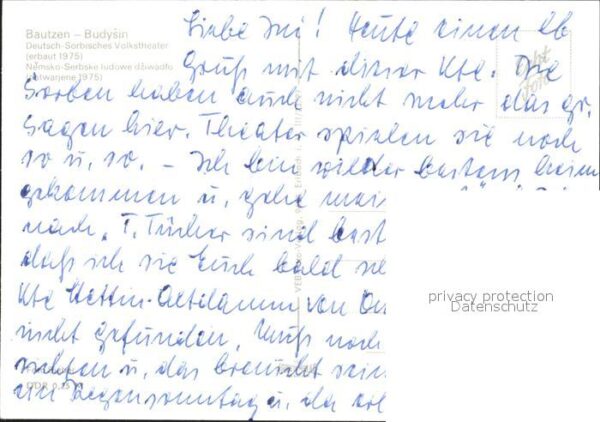 Bautzen – Budyšin
Deutsch-Sorbisches Volkstheater
(erbaut 1975)
Němsko-Serbske ludowe dźiwadło
(natwarjene 1975)
Liebe Ini! Heute einen lb
Gruß mit dieser Kte. Die
Sorben haben auch nicht mehr das gr.
Sagen hier. Theater spielen sie noch
so u. so. – Ich bin wieder bestens heim
gekommen u. gehe
nach. T. Tücher sind best
daß ich sie Euch bald
Kte Stettin-Altdamm von
nicht gefunden, Muß noch
sichten u. das braucht sein
ein Regensonntag u. da
privacy protection
Datenschutz